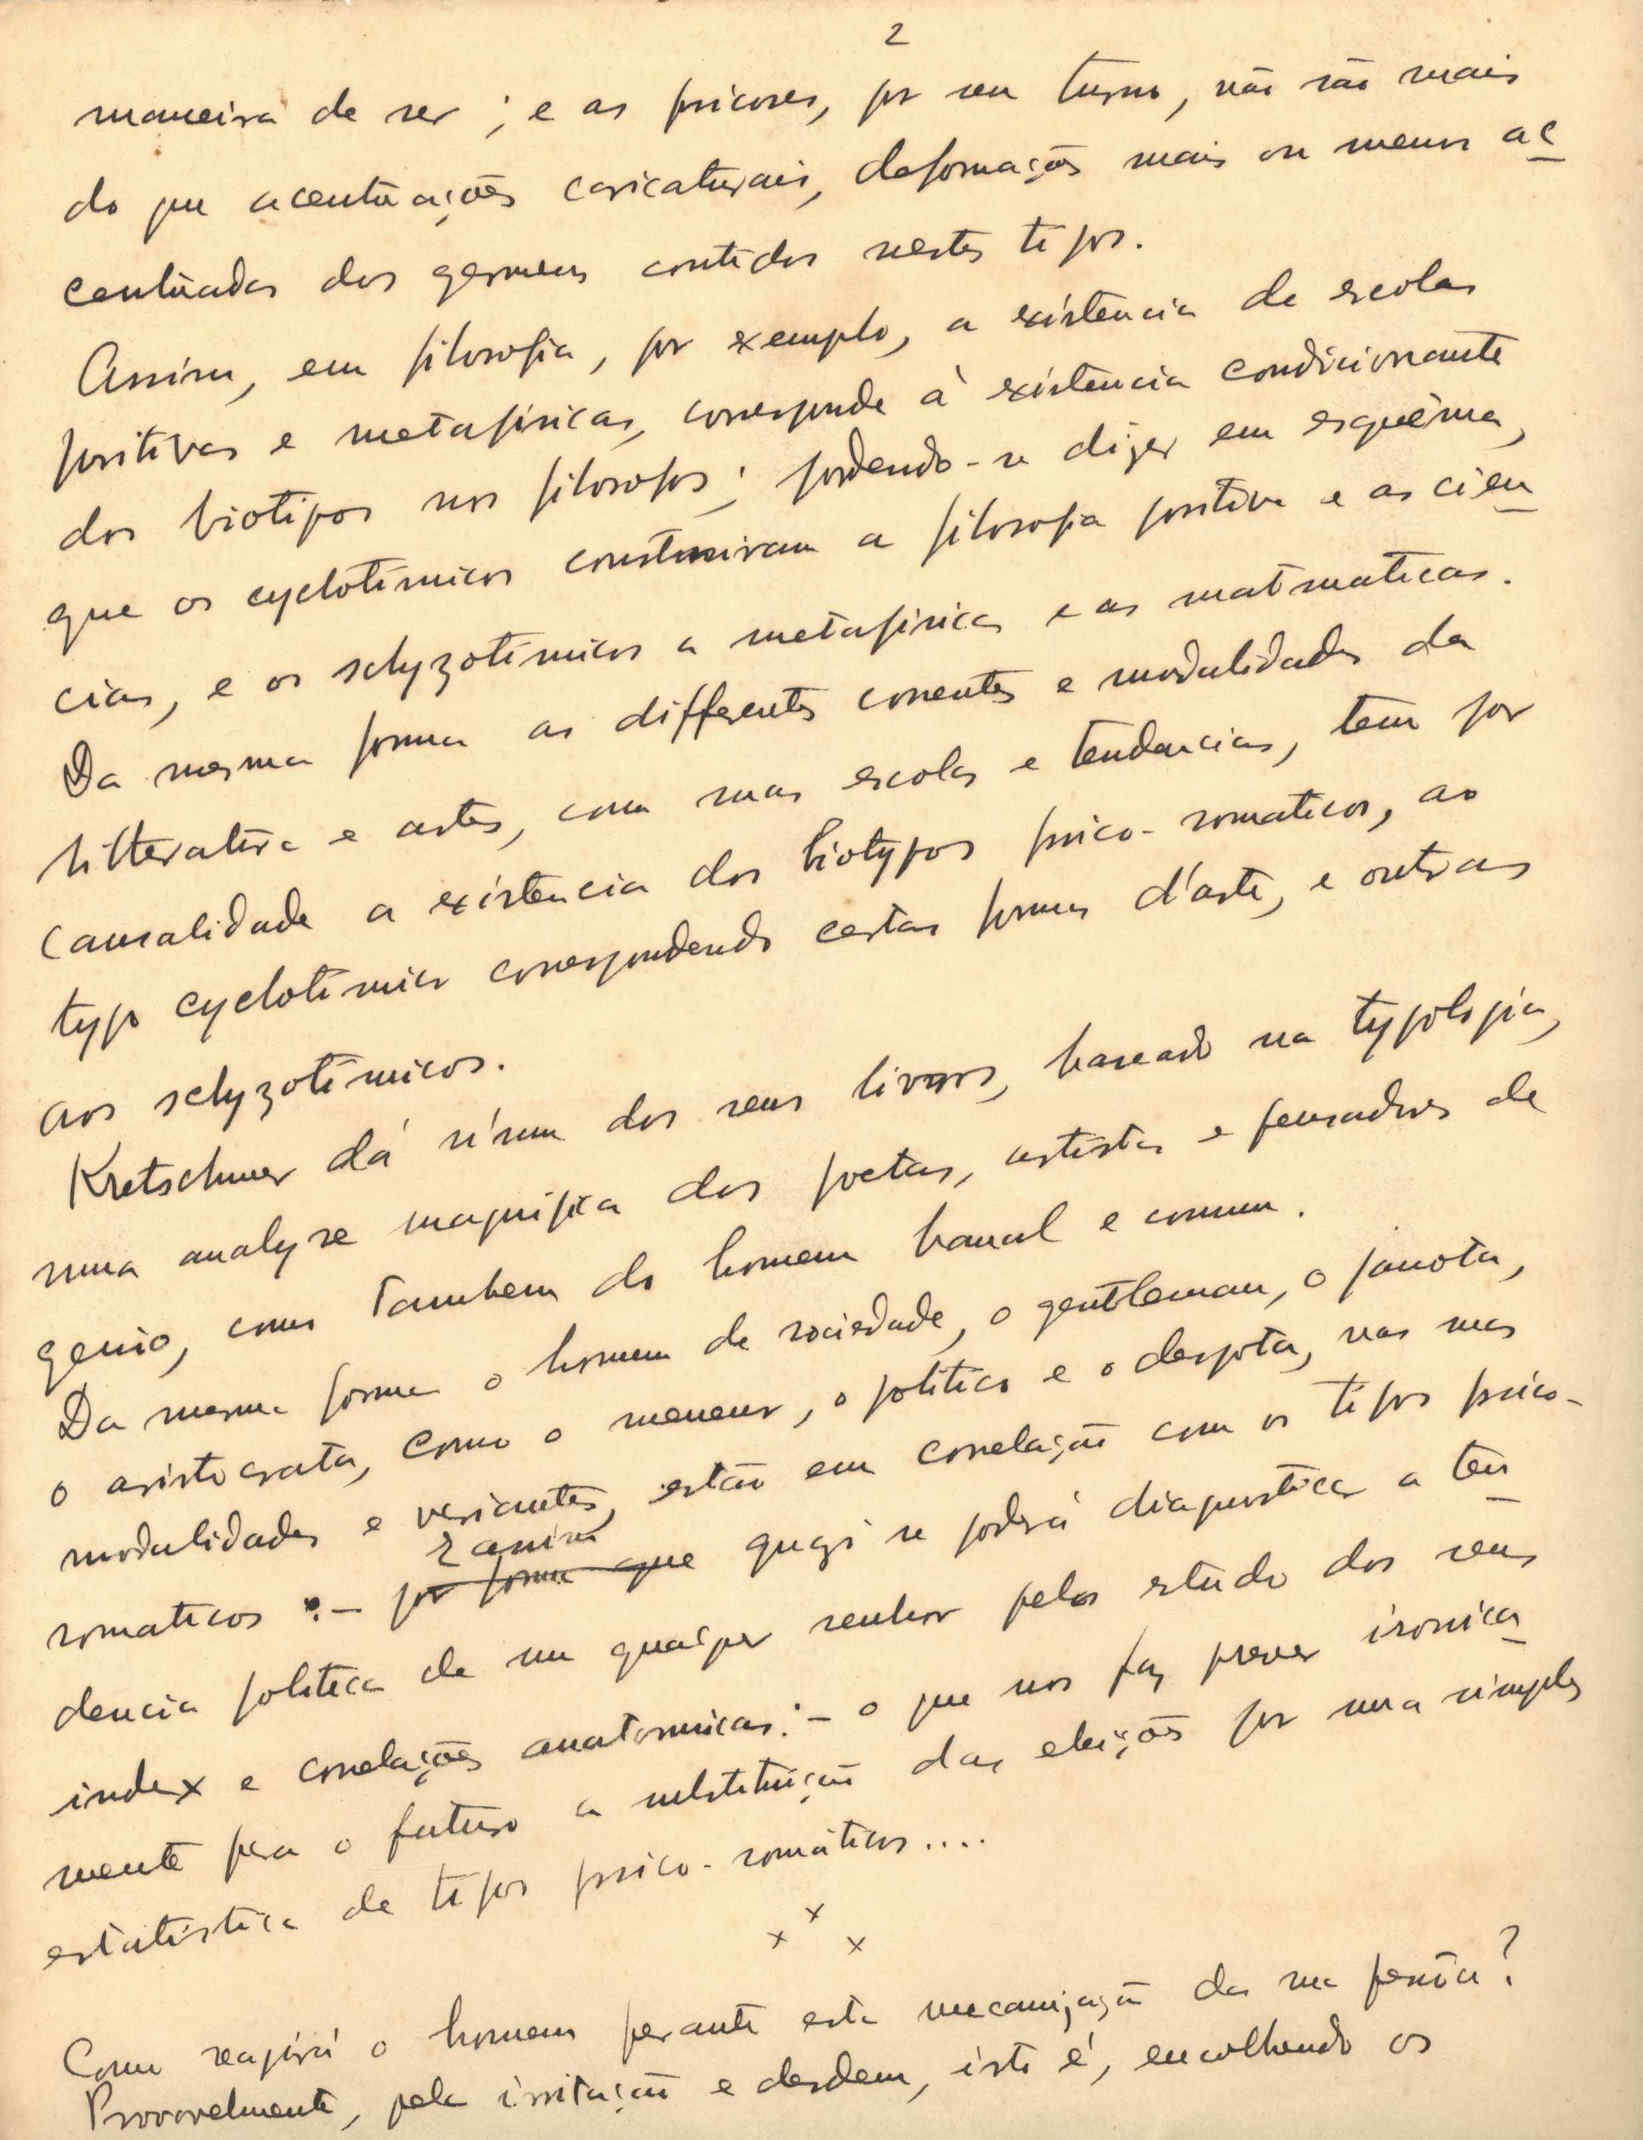 2
maneira de ser ; e as psicoses, por seu turno, não são mais
do que acentuações caricaturais, deformações mais ou menos ac
centuadas dos germens contidos nestes tipos.
Assim, em filosofia, por exemplo, a existencia de escolas
positivas e metafisicas, corresponde á existencia condicionante
dos biotipos nos filosofos ; podendo-se dizer em esquêma,
que os cyclotimicos construiram a filosofia positiva e as cien
cias, e os schyzotimicos a metafisica e as matmaticas.
Da mesma forma as differentes correntes e modalidades da
litteratura e artes, com suas escolas e tendencias, tem por
causalidade a existencia dos biotypos psico-somaticos, ao
typo cyclotimico correspondendo certas formas d'arte, e outras
aos schyzotimicos.
Kretschmer dá n'um dos seus livros, baseado na typologia,
uma analyse magnifica dos poetas, artistas e pensadores de
genio, como tambem do homem banal e comum.
Da mesma forma o homem de sociedade, o gentleman, o janota,
o aristocrata, como o meneur, o politico e o despota, nas suas
modalidades e variantes, estão em correlação com os tipos psico-
somaticos :- por forma que quasi se poderá diagnosticar a ten
E assim
dencia politica de um qualquer senhor pelo estudo dos seus
index e correlações anatomicas :- o que nos faz prever ironica
mente para o futuro a substituição das eleições por uma simples
estatistica de tipos psico-somáticos....
x x x
Como reagirá o homem perante esta mecanização da sua pessôa ?
Provavelmente, pela irritação e desdem, isto é, encolhendo os